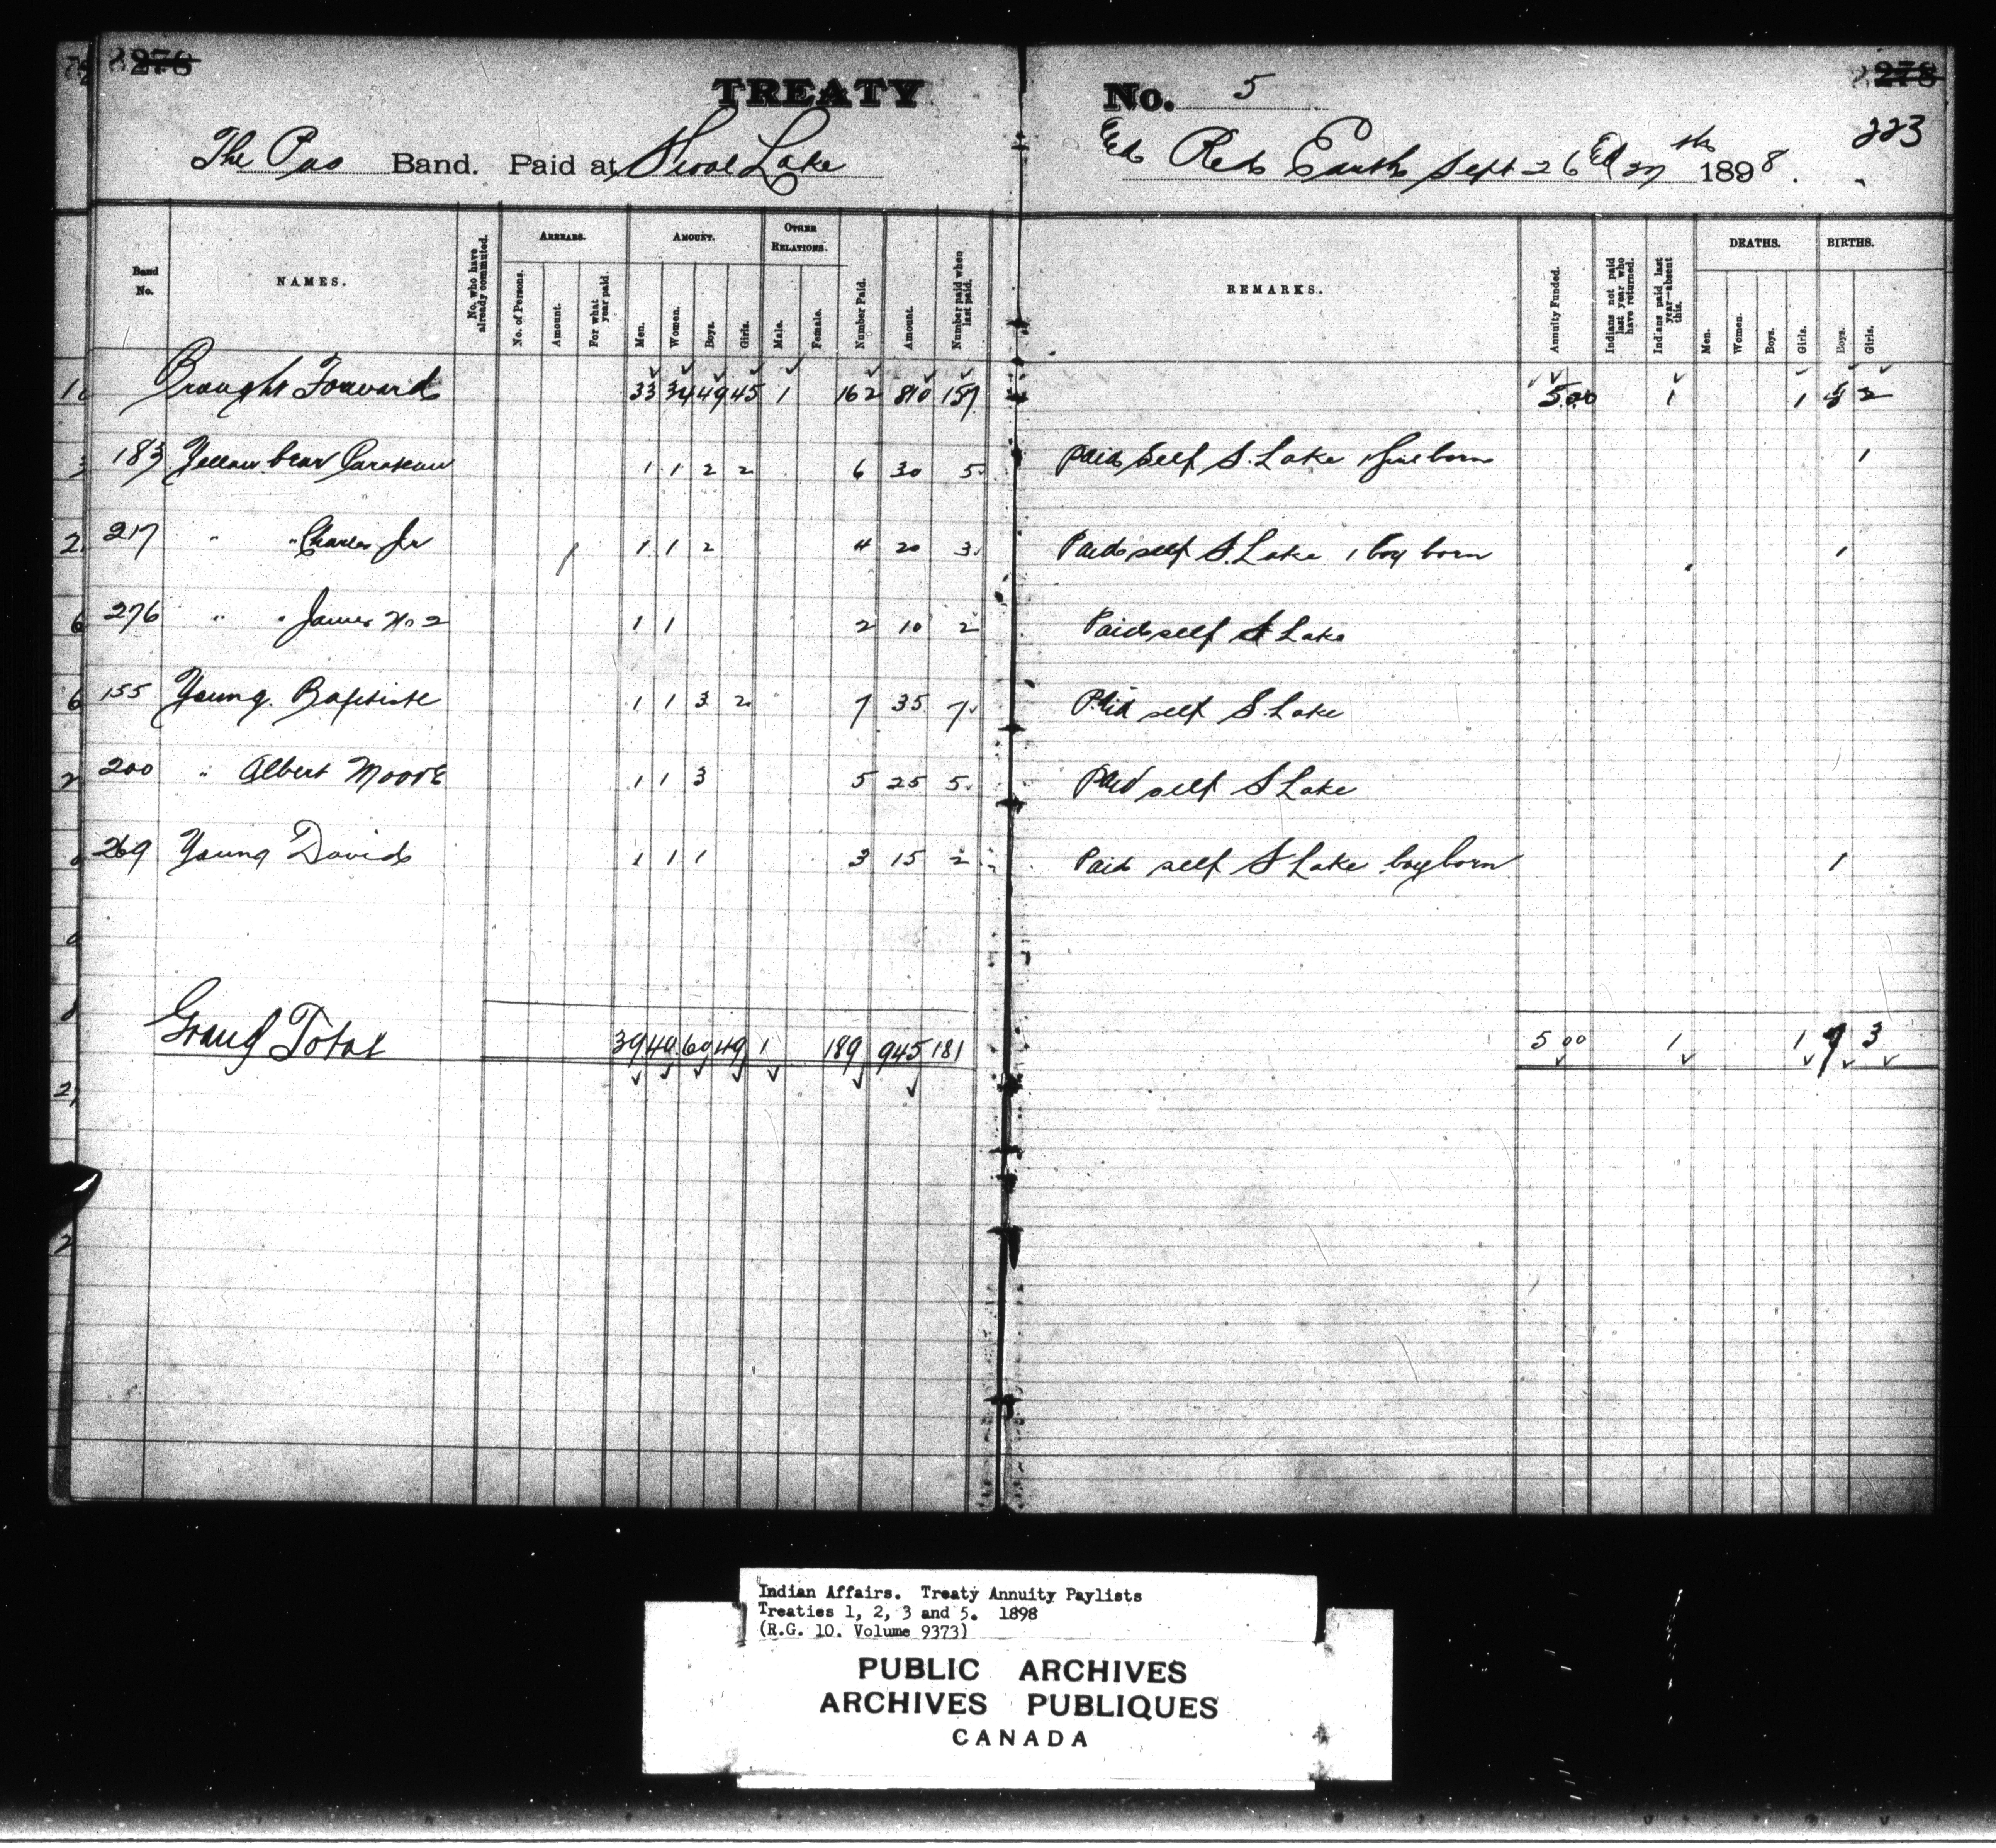 278 TREATY No. 5 278
223
The Pas Band. Paid at Shoal Lake & Red Earth Sept 26 & 27th 1898.
Band No. NAMES. No. who have already commuted. ARREARS. No. of Persons. Amount. For what year paid. AMOUNT. Men. Women. Boys. Girls. OTHER RELATIONS. Male. Female. Number Paid. Amount. Number paid when last paid. REMARKS. Annuity Funded. Indians not paid last year who have returned. Indians paid last year—absent this. DEATHS. Men. Women. Boys. Girls. BIRTHS. Boys. Girls.
Brought Forward 33 34 49 45 1 162 810 157 5.00 1 1 5 2
183 Yellow bear 1 1 2 2 6 30 5 Paid self S. Lake 1 girl born 1
217 " " Charles Jr 1 1 2 4 20 3 Paid self S. Lake 1 boy born 1
276 " " James No 2 1 1 2 10 2 Paid self S Lake
155 Young Baptiste 1 1 3 2 7 35 7 Paid self S. Lake
200 " Albert Moore 1 1 3 5 25 5 Paid self S Lake
269 Young David 1 1 1 3 15 2 Paid self S Lake boy born 1
Grand Total 39 40 60 49 1 189 945 181 5 00 1 1 7 3
Indian Affairs. Treaty Annuity Paylists
Treaties 1, 2, 3 and 5. 1898
(R.G. 10. Volume 9373)
PUBLIC ARCHIVES
ARCHIVES PUBLIQUES
CANADA